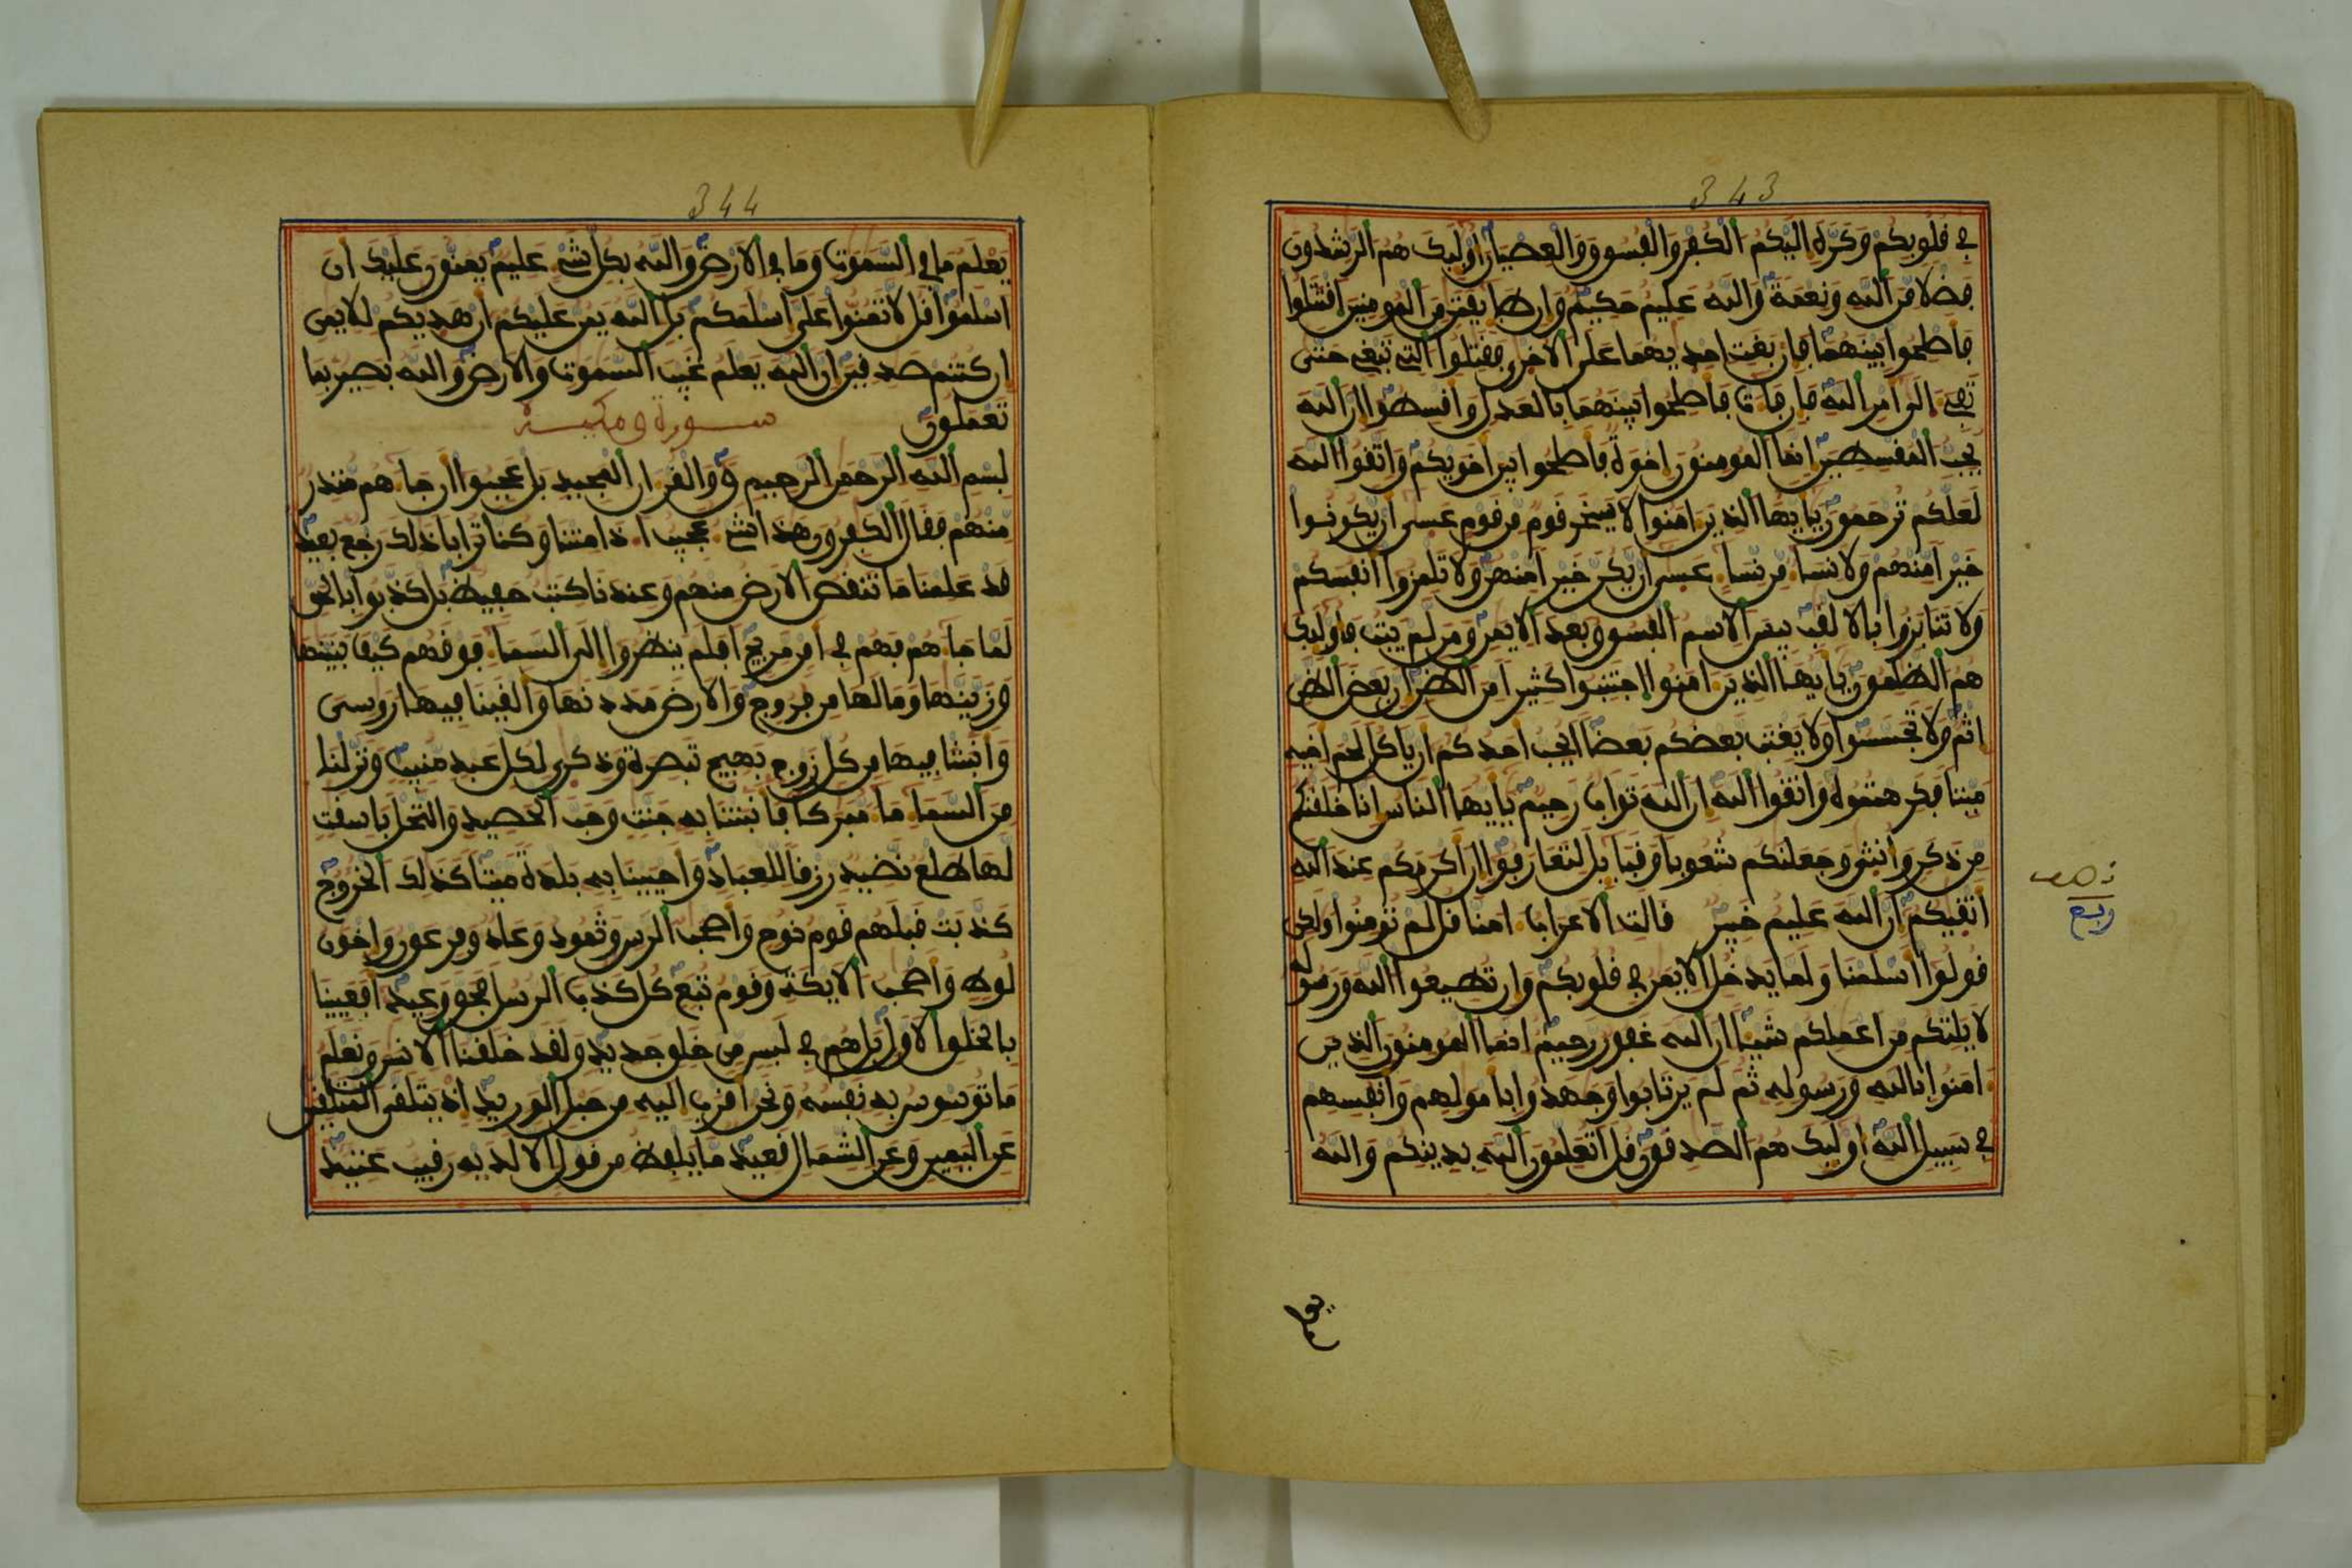 343
في قلوبكم وكره اليكم الكفر والفسوق والعصيان اوليك هم الرشدون
فضلا من الله ونعمة والله عليم حكيم وان طايفتن من المومنين اقتتلوا
فاصلحوا بينهما فان بغت احديهما على الاخرى فقتلوا التي تبغي حتى
تفيء الى امر الله فان فاءت فاصلحوا بينهما بالعدل واقسطوا ان الله
يحب المقسطين انما المومنون اخوة فاصلحوا بين اخويكم واتقوا الله
لعلكم ترحمون يايها الذين امنوا لا يسخر قوم من قوم عسى ان يكونوا
خيرا منهم ولا نساء من نساء عسى ان يكن خيرا منهن ولا تلمزوا انفسكم
ولا تنابزوا بالالقب بيس الاسم الفسوق بعد الايمن ومن لم يتب فاوليك
هم الظلمون يايها الذين امنوا اجتنبوا كثيرا من الظن ان بعض الظن
اثم ولا تجسسوا ولا يغتب بعضكم بعضا ايحب احدكم ان ياكل لحم اخيه
ميتا فكرهتموه واتقوا الله ان الله تواب رحيم يايها الناس انا خلقنكم
من ذكر وانثى وجعلنكم شعوبا وقبايل لتعارفوا ان اكرمكم عند الله
اتقيكم ان الله عليم خبير قالت الاعراب امنا قل لم تومنوا ولكن
قولوا اسلمنا ولما يدخل الايمن في قلوبكم وان تطيعوا الله ورسوله
لا يلتكم من اعملكم شيئا ان الله غفور رحيم انما المومنون الذين
امنوا بالله ورسوله ثم لم يرتابوا وجهدوا باموالهم وانفسهم
في سبيل الله اوليك هم الصدقون قل اتعلمون الله بدينكم والله
ربع
يعلم
344
يعلم ما في السموت وما في الارض والله بكل شيء عليم يمنون عليك ان
اسلموا قل لا تمنوا على اسلمكم بل الله يمن عليكم ان هديكم للايمن
ان كنتم صدقين ان الله يعلم غيب السموت والارض والله بصير بما
تعملون سورة ق مكية
بسم الله الرحمن الرحيم ق والقرءان المجيد بل عجبوا ان جاءهم منذر
منهم فقال الكفرون هذا شيء عجيب اءذا متنا وكنا ترابا ذلك رجع بعيد
قد علمنا ما تنقص الارض منهم وعندنا كتب حفيظ بل كذبوا بالحق
لما جاءهم فهم في امر مريج افلم ينظروا الى السماء فوقهم كيف بنينها
وزينها وما لها من فروج والارض مددنها والقينا فيها روسى
وانبتنا فيها من كل زوج بهيج تبصرة وذكرى لكل عبد منيب ونزلنا
من السماء ماء مبركا فانبتنا به جنت وحب الحصيد والنخل باسقت
لها طلع نضيد رزقا للعباد واحيينا به بلدة ميتا كذلك الخروج
كذبت قبلهم قوم نوح واصحب الرس وثمود وعاد وفرعون واخون
لوط واصحب الايكة وقوم تبع كل كذب الرسل فحق وعيد افعيينا
بالخلق الاول بل هم في لبس من خلق جديد ولقد خلقنا الانسن ونعلم
ما توسوس به نفسه ونحن اقرب اليه من حبل الوريد اذ يتلقى المتلقين
عن اليمين وعن الشمال قعيد ما يلفظ من قول الا لديه رقيب عتيد